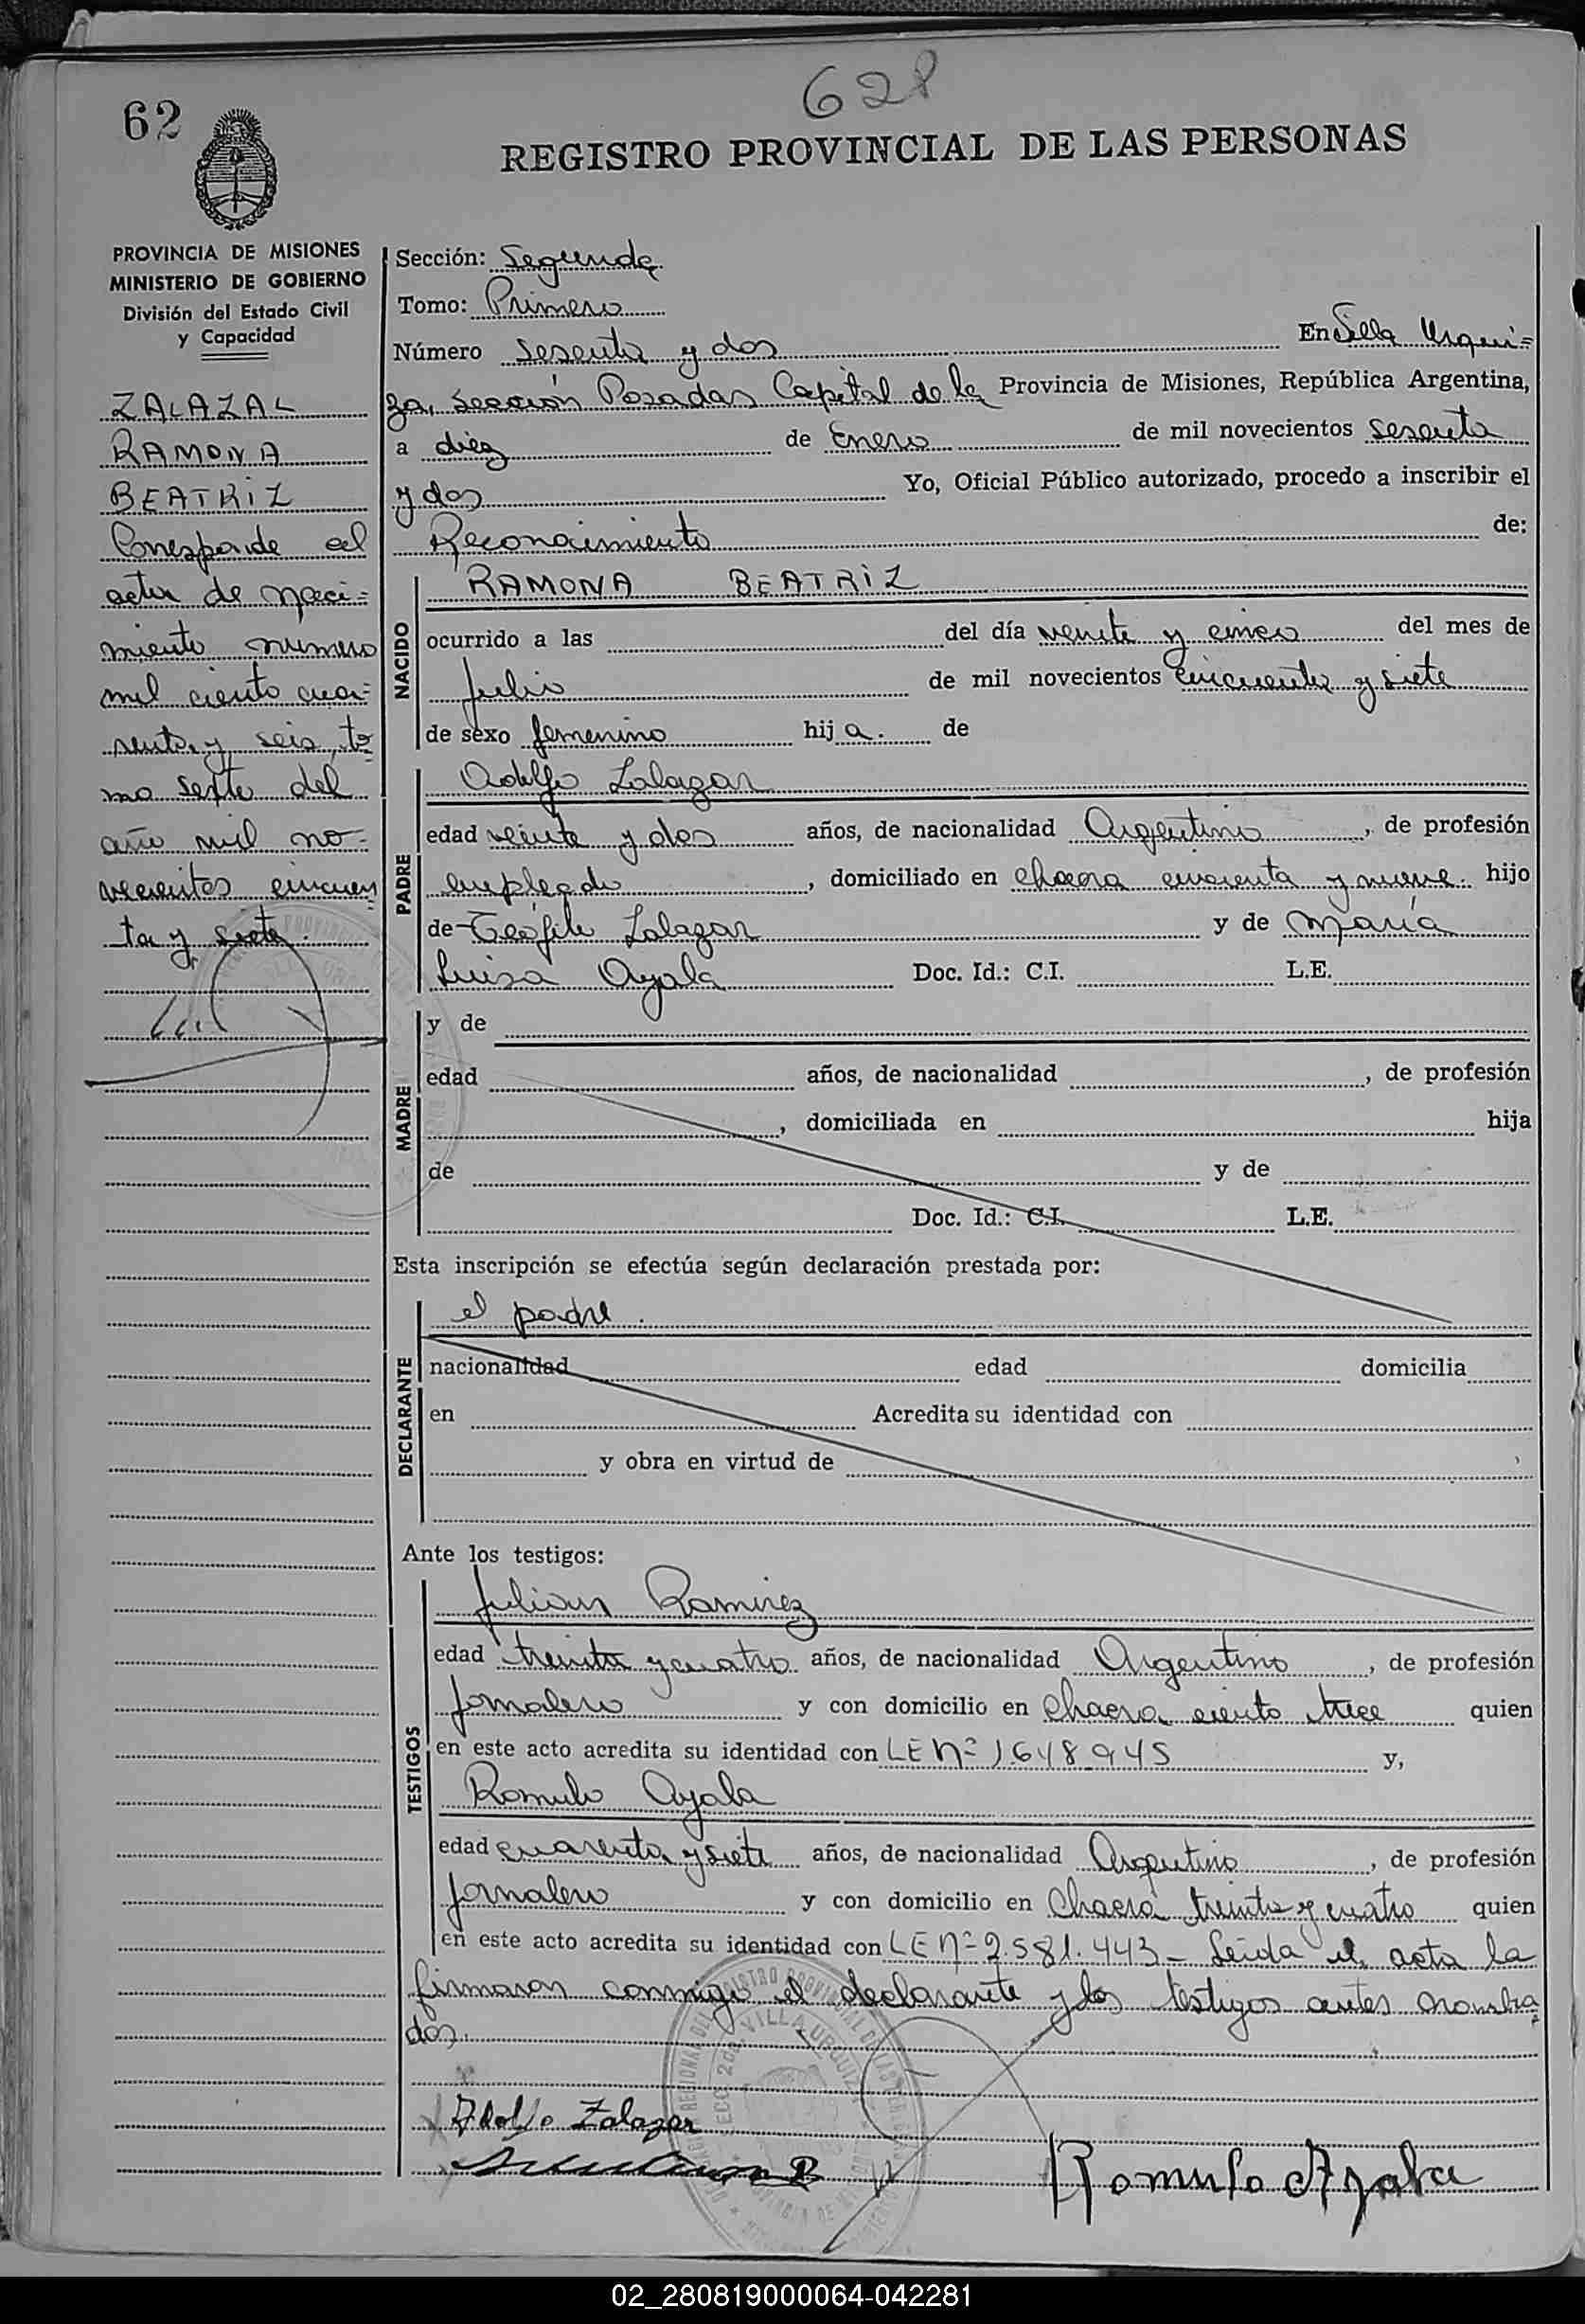 628
62
REGISTRO PROVINCIAL DE LAS PERSONAS
PROVINCIA DE MISIONES
MINISTERIO DE GOBIERNO
División del Estado Civil
y Capacidad
ZALAZAL
RAMONA
BEATRIZ
Corresponde al
acta de naci=
miento numero
mil ciento cua=
renta y seis, to
mo sexto del
año mil no=
vecientos cincuen
ta y siete
Sección: Segunda
Tomo: Primero
Número Sesenta y dos En Villa Urqui=
za, sección Posadas Capital de la Provincia de Misiones, República Argentina,
a diez de Enero de mil novecientos sesenta
y dos Yo, Oficial Público autorizado, procedo a inscribir el
Reconocimiento de:
NACIDO
RAMONA BEATRIZ
ocurrido a las del día veinte y cinco del mes de
Julio de mil novecientos cincuenta y siete
de sexo femenino hija. de
PADRE
Adolfo Zalazar
edad veinte y dos años, de nacionalidad Argentino, de profesión
empleado, domiciliado en chacra cincuenta y nueve. hijo
de Teófilo Zalazar y de María
Luisa Ayala Doc. Id.: C.I. L.E.
MADRE
y de
edad años, de nacionalidad , de profesión
, domiciliada en hija
de y de
Doc. Id.: C.I. L.E.
Esta inscripción se efectúa según declaración prestada por:
DECLARANTE
el padre.
nacionalidad edad domicilia
en Acredita su identidad con
y obra en virtud de
Ante los testigos:
TESTIGOS
Julian Ramirez
edad treinta y cuatro años, de nacionalidad Argentino, de profesión
jornalero y con domicilio en Chacra ciento trece quien
en este acto acredita su identidad con LE Nº 1648945 y,
Romulo Ayala
edad cuarenta y siete años, de nacionalidad Argentino, de profesión
jornalero y con domicilio en Chacra treinta y cuatro quien
en este acto acredita su identidad con LE Nº 2.581.443 - Leida el acta la
firmaron conmigo el declarante y los testigos antes nombra
dos.
Adolfo Zalazar
Romulo Ayala
02_280819000064-042281